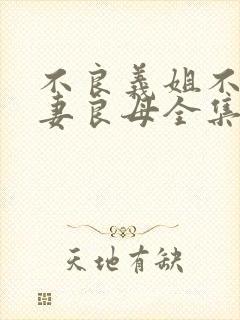 不良義姐不
妻良母全集
天地有缺